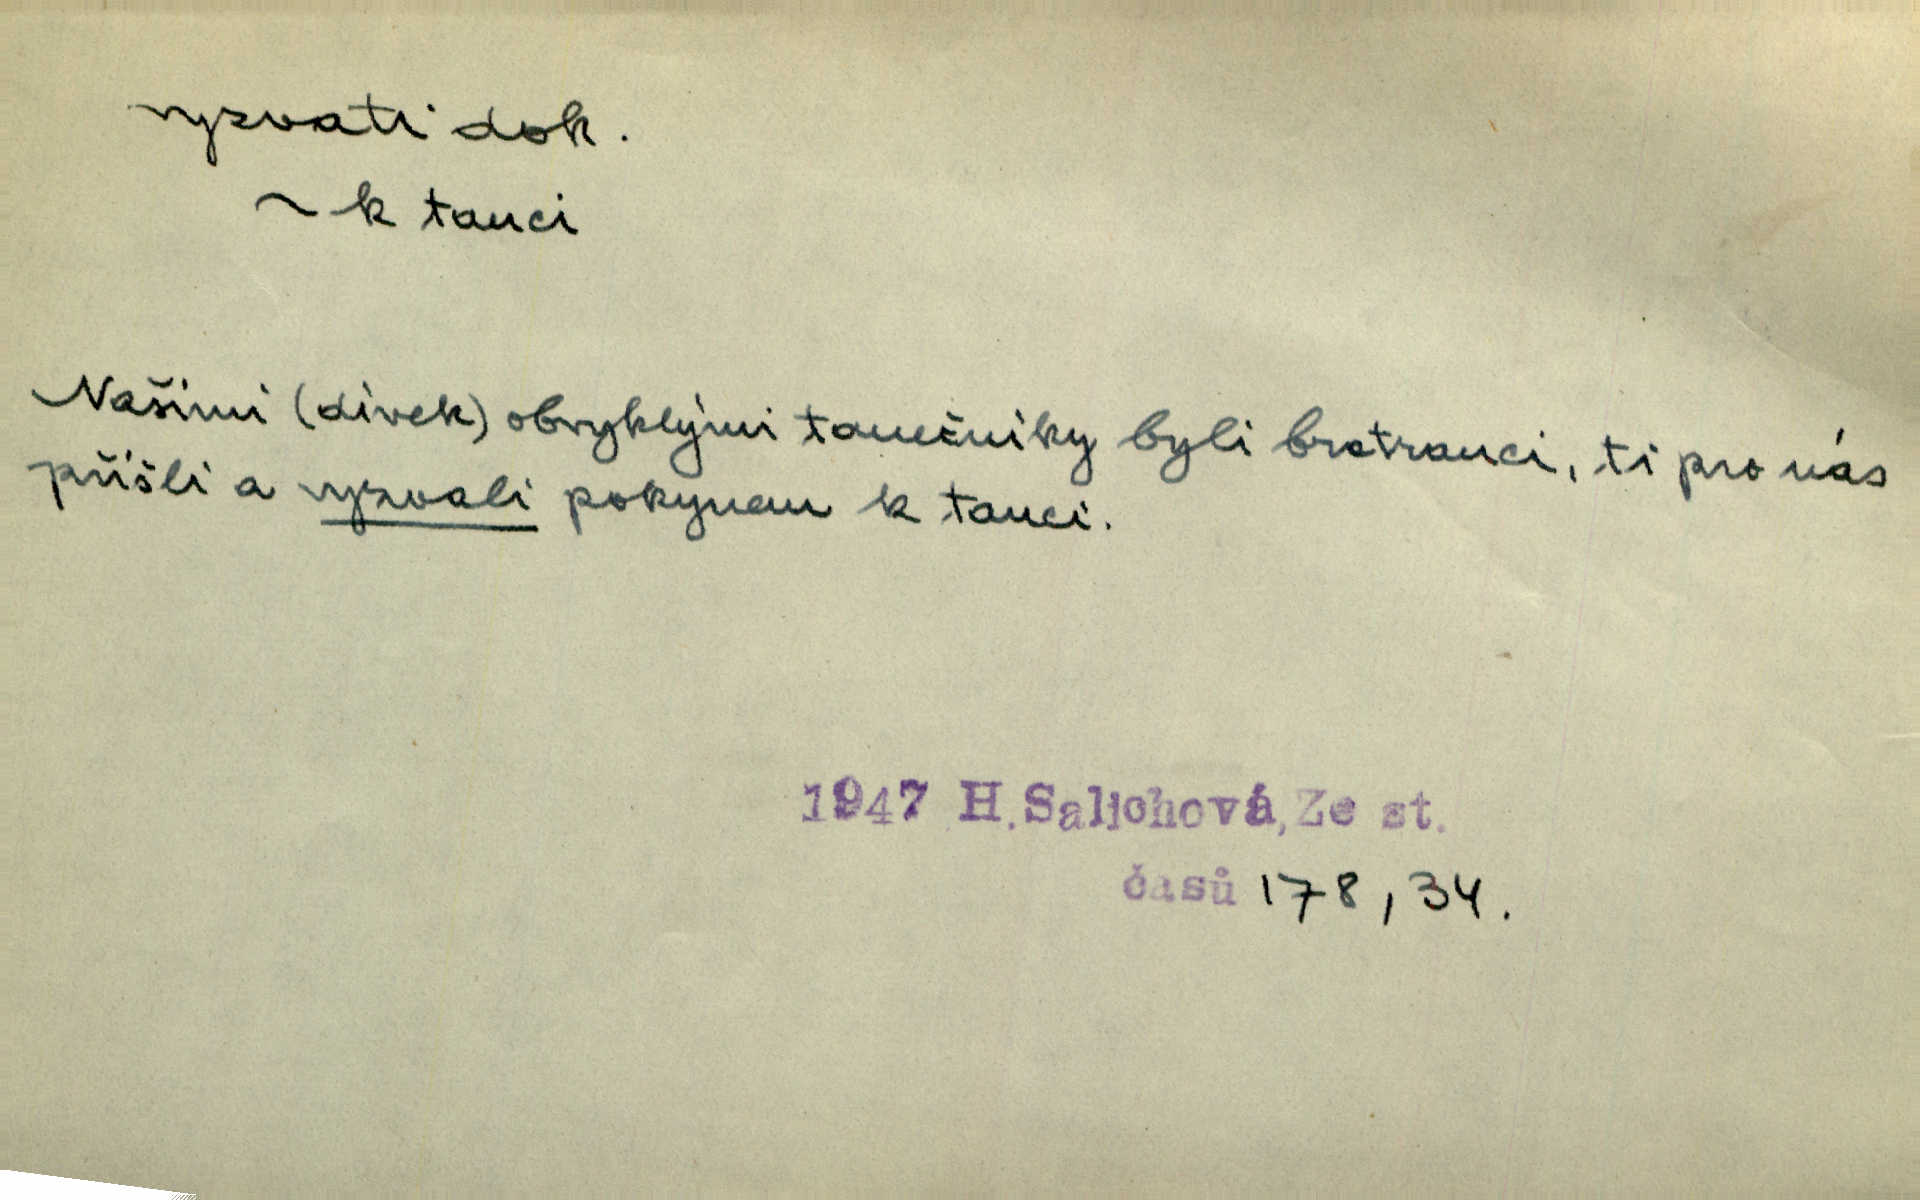 vyzvati dok.
~ k tanci
Našimi (dívek) obvyklými tanečníky byli bratranci, ti pro nás
přišli a vyzvali pokynem k tanci.
1947 H.Salichová, Ze st.
časů 178, 34.